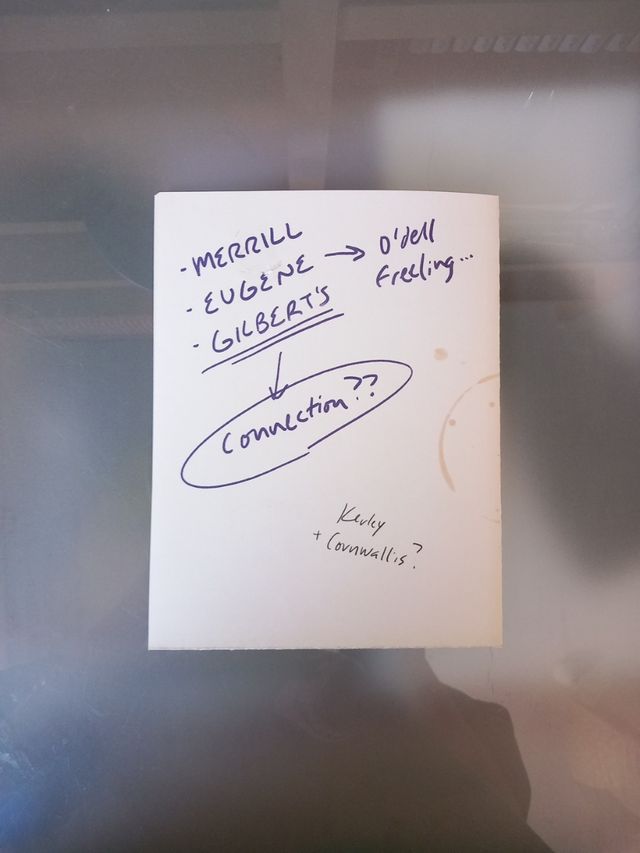 - MERRILL
- EUGENE → O'dell
Freeling...
- GILBERT'S
Connection??
Kerley
+ Cornwallis?